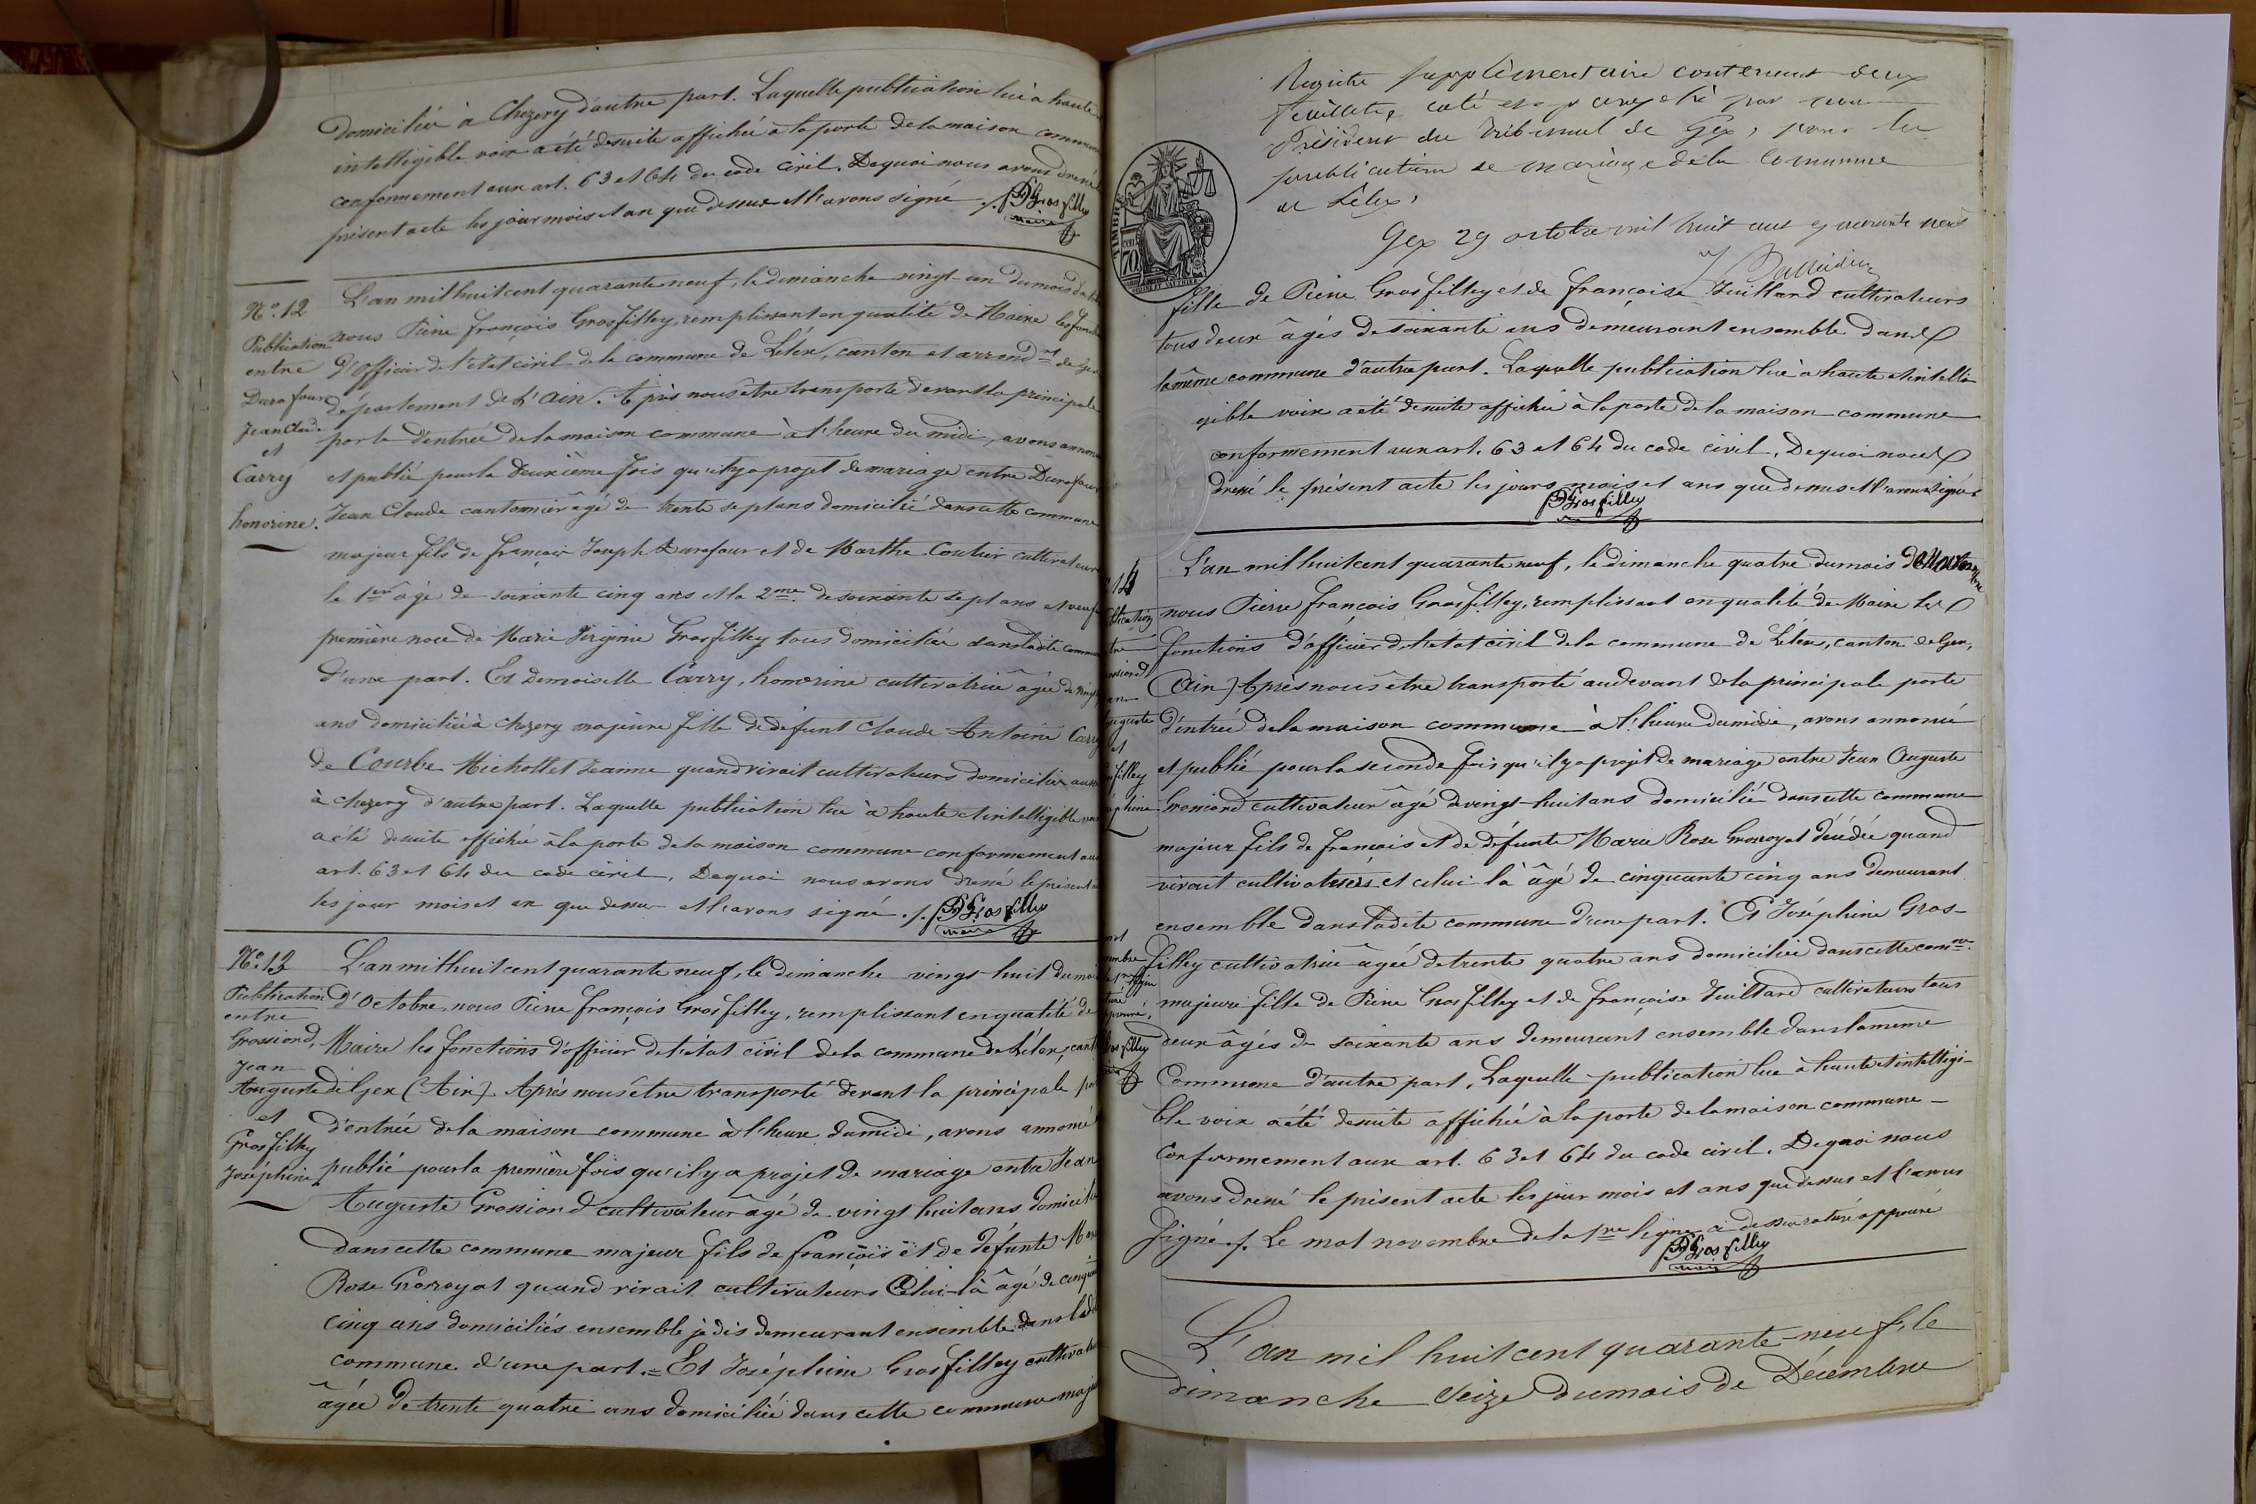 Domiciliée à Chezery d'autre part. Laquelle publication lue à haute et
intelligible voix a été desuite affichée à la porte de la maison commune
conformement aux art. 63 et 64 du code civil. Dequoi nous avons dressé le
présent acte les jour mois et an que dessus et l'avons signé ./. PF Grosfilley
maire
N.o 12
Publication
entre
Durafour
Jean Claude
et
Carry
honorine.
L'an mil huit cent quarante neuf, le dimanche vingt-un du mois d'
nous Pierre françois Grosfilley, remplissant en qualité de Maire les
d'officier de l'etat civil de la commune de Lélex, canton et arrond.nt de Gex
département de l'Ain. Après nous être transporté devant la principale
porte d'entrée de la maison commune à l'heure du midi, avons annoncé
et publié pour la deuxième fois qu'il y a projet de mariage entre Durafour
Jean Claude cantonnier âgé de trente sept ans domicilié dans cette commune
majeur fils de françois Joseph Durafour et de Marthe Coutier cultivateurs
le 1.er âgé de soixante cinq ans et la 2.me de soixante sept ans et veuf
première noce de Marie Virginie Grosfilley tous domiciliés dans ladite commune
d'une part. Et Demoiselle Carry, honorine cultivatrice âgée de vingt
ans domiciliée à Chezery majeure fille de défunt Claude Antoine Carry
de Courbe Michollet Jeanne quand vivait cultivateurs domiciliés aussi
à Chezery d'autre part. Laquelle publication lue à haute et intelligible voix
a été desuite affichée à la porte de la maison commune conformement aux
art. 63 et 64 du code civil. Dequoi nous avons dressé le présent
les jour mois et an que dessus et l'avons signé ./. PF Grosfilley
maire
N.o 13
Publication
entre
Grossiord,
Jean
Auguste
et
Grosfilley
Joséphine
L'an mil huit cent quarante neuf, le dimanche vingt-huit du mois
d'Octobre, nous Pierre françois Grosfilley, remplissant en qualité de
Maire les fonctions d'officier de l'état civil de la commune de Lélex, canton
de Gex (Ain). Après nous être transporté devant la principale porte
d'entrée de la maison commune à l'heure du midi, avons annoncé
publié pour la première fois qu'il y a projet de mariage entre Jean
Auguste Grossiord cultivateur âgé de vingt huit ans domicilié
dans cette commune majeur fils de françois et de défunte Marie
Rose Grosroyat quand vivait cultivateurs Celui-là âgé de cinquante
cinq ans domiciliés ensemble je dis demeurant ensemble dans ladite
commune d'une part. = Et Joséphine Grosfilley cultivatrice
âgée de trente quatre ans domiciliée dans cette commune majeure
Registre supplémentaire contenant deux
feuillets, coté et paraphé par nous
Président du tribunal de Gex, pour les
publications de mariage de la commune
de Lélex,
Gex 29 octobre mil huit cent quarante neuf
TIMBRE
70
fille de Pierre Grosfilley et de françoise Juilland cultivateurs
tous deux âgés de soixante ans demeurant ensemble dans
la même commune d'autre part. Laquelle publication lue à haute et intelli-
gible voix a été desuite affichée à la porte de la maison commune
conformement aux art. 63 et 64 du code civil. Dequoi nous
dressé le présent acte les jours mois et ans que dessus et l'avons signé
PF Grosfilley
14
L'an mil huit cent quarante neuf, le dimanche quatre du mois de Novembre
nous Pierre françois Grosfilley, remplissant en qualité de Maire les
fonctions d'officier de l'etat civil de la commune de Lélex, canton de Gex,
(Ain) Après nous être transporté au devant de la principale porte
d'entrée de la maison commune à l'heure du midi, avons annoncé
et publié pour la seconde fois qu'il y a projet de mariage entre Jean Auguste
Grossiord cultivateur âgé de vingt-huit ans domicilié dans cette commune
majeur fils de françois et de défunte Marie Rose Grosroyat décédée quand
vivait cultivatrice, et celui là âgé de cinquante cinq ans demeurant
ensemble dans ladite commune d'une part. Et Joséphine Gros-
filley cultivatrice âgée de trente quatre ans domiciliée dans cette com.ne
majeure fille de Pierre Grosfilley et de françoise Juilland cultivateurs tous
deux âgés de soixante ans demeurant ensemble dans la même
Commune d'autre part. Laquelle publication lue à haute et intelligi-
ble voix a été desuite affichée à la porte de la maison commune
conformement aux art. 63 et 64 du code civil. Dequoi nous
avons dressé le présent acte les jour mois et ans que dessus et l'avons
signé ./. Le mot novembre de la 1.re ligne ci dessus raturé approuvé
PF Grosfilley
maire
L'an mil huit cent quarante-neuf, le
dimanche seize du mois de Décembre